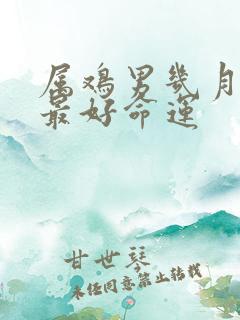 属鸡男几月
最好命运
甘世琴
未经同意,禁止转载